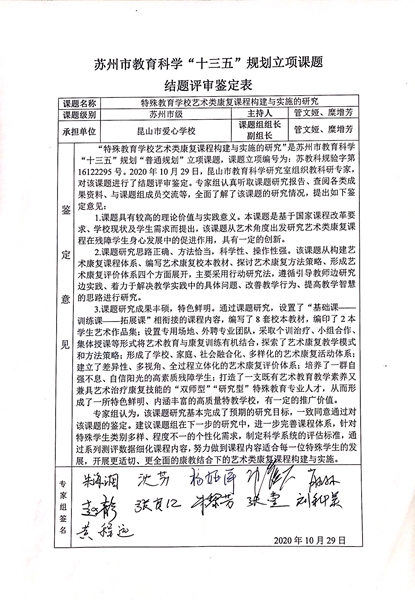 苏州市教育科学“十三五”规划立项课题
结题评审鉴定表
课题名称 特殊教育学校艺术类康复课程构建与实施的研究
课题级别 苏州市级 主持人 管文娅、糜增芳
承担单位 昆山市爱心学校 课题组组长 副组长 管文娅、糜增芳
鉴定意见
“特殊教育学校艺术类康复课程构建与实施的研究”是苏州市教育科学
“十三五”规划“普通规划”立项课题，课题立项编号为：苏教科规验字第
16122295 号。2020 年 10 月 29 日，昆山市教育科学研究室组织教科研专家，
对该课题进行了结题评审鉴定。专家组认真听取课题研究报告、查阅各类成
果资料、与课题组成员交流等，全面了解了该课题的研究情况，提出如下鉴
定意见：
1.课题具有较高的理论价值与实践意义。本课题是基于国家课程改革要
求、学校现状及学生需求而提出，该课题从艺术角度出发研究艺术类类康复课
程在残障学生身心发展中的促进作用，具有一定的创新。
2.课题研究思路正确、方法恰当，科学性、操作性强。该课题从构建艺
术康复课程体系、编写艺术康复校本教材、探讨艺术康复方法策略、形成艺
术康复评价体系四个方面展开，主要采用行动研究法，遵循引导教师边研究
边实践、着力于解决教学实践中的具体问题、改善教学行为、提高教学智慧
的思路进行研究。
3.课题研究成果丰硕，特色鲜明。通过课题研究，设置了“基础课—
训练课—拓展课”相衔接的课程内容，编写了 8 套校本教材，编印了 2 本
学生艺术作品集；设置专用场地、外聘专业团队，采取个训治疗、小组合作、
集体授课等形式将艺术教育与康复训练有机结合，探索了艺术康复教学模式
和方法策略；形成了学校、家庭、社会融合化、多样化的艺术康复活动体系；
建立了差异性、多视角、全过程立体化的艺术康复评价体系；培养了一群自
强不息、自信阳光的高素质残障学生；打造了一支既有艺术教育教学素养又
兼具艺术治疗康复技能的“双师型”“研究型”特殊教育专业人才，从而形
成了一所特色鲜明、内涵丰富的高质量特教学校，有一定的推广价值。
专家组认为，该课题研究基本完成了预期的研究目标，一致同意通过对
该课题的鉴定。建议课题组在下一步的研究中，进一步完善课程体系，针对
特殊学生类别多样、程度不一的个性化需求，制定科学系统的评估标准，通
过系列测评数据细化课程内容，努力做到课程内容适合每一位特殊学生的发
展，开展更适切、更全面的康教结合下的艺术类康复课程构建与实施。
专家组签名
2020 年 10 月 29 日